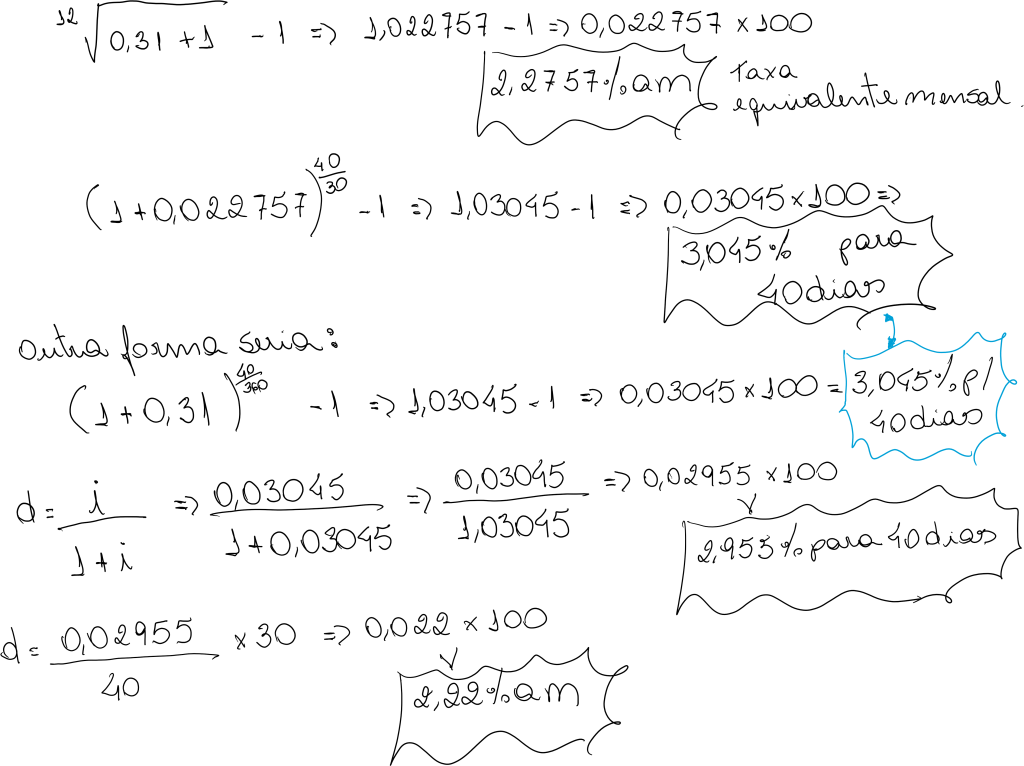 ¹²√(0,31 + 1) - 1 => 1,022757 - 1 => 0,022757 x 100
2,2757% am Taxa
equivalente mensal.
(1 + 0,022757)^(40/30) - 1 => 1,03045 - 1 => 0,03045 x 100 =>
3,045% para
40 dias
outra forma seria:
(1 + 0,31)^(40/360) - 1 => 1,03045 - 1 => 0,03045 x 100 = 3,045% p/
40 dias
d = i/(1 + i) => 0,03045/(1 + 0,03045) => 0,03045/1,03045 => 0,02955 x 100
2,955% para 40 dias
d = 0,02955/40 x 30 => 0,022 x 100
2,22% am